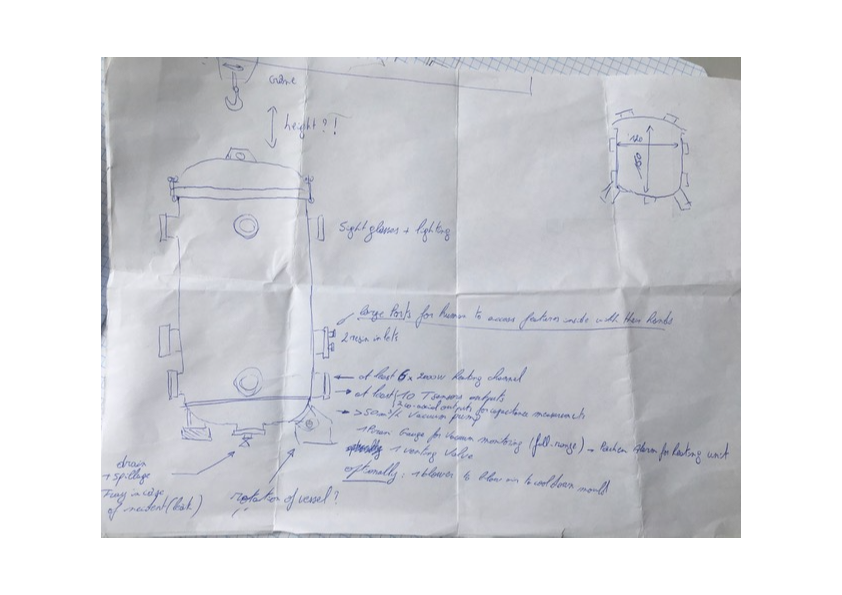 crane
height ? !
120
Sight glasses + lighting
large Ports for human to access features inside with their hands
2 resin inlets
at least 6 x 2000W heating channel
at least 10 T sensors outputs
2 co-axial outputs for capacitance measurements
> 50 m³/h Vacuum pump
1 Piran Gauge for vacuum monitoring (full-range) → Alarm for heating unit
1 venting valve
optionally : 1 blower to blow air to cool down mould
drain
+ spillage
Tray in case
of incident (leak)
rotation of vessel ?